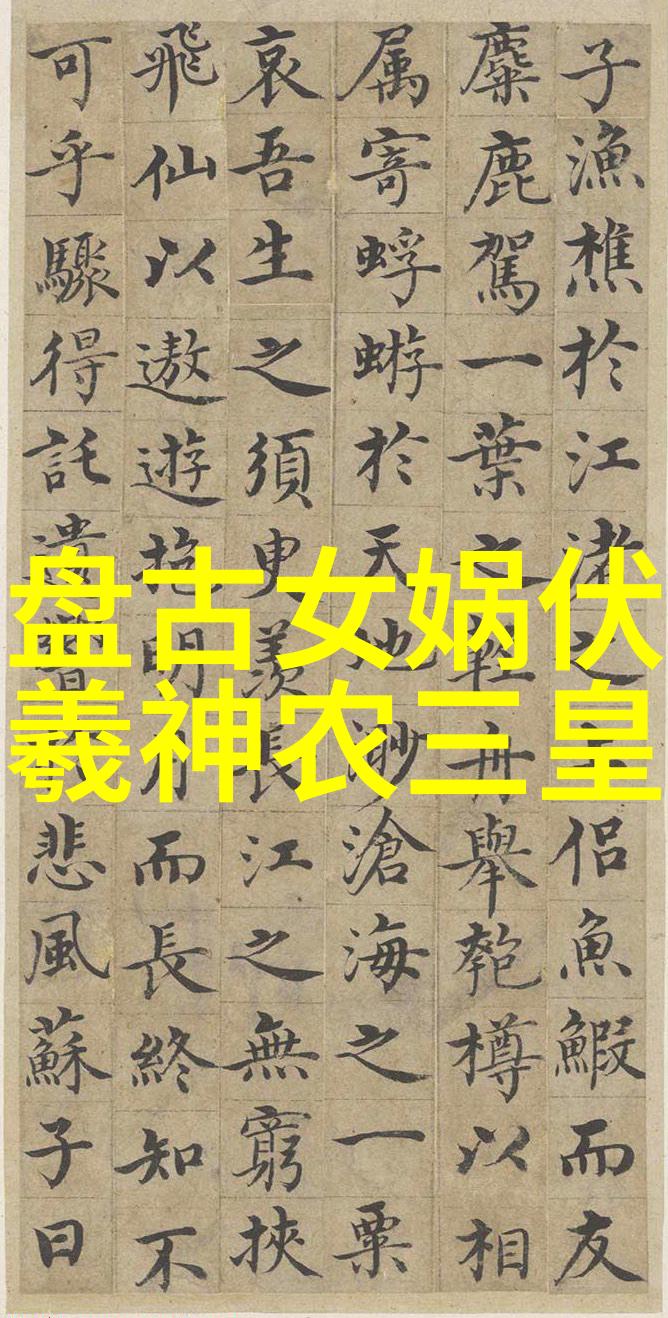 盘古女娲伏
羲神农三皇
子漁樵於江渚之侣魚鰕而友
麋鹿駕一葉之輕舟舉匏樽以相
属寄蜉蝣於天地渺滄海之一粟
哀吾生之須臾羨長江之無窮挾
飛仙以遨遊抱明月而長終知不
可乎驟得託遺響悲風蘇子曰